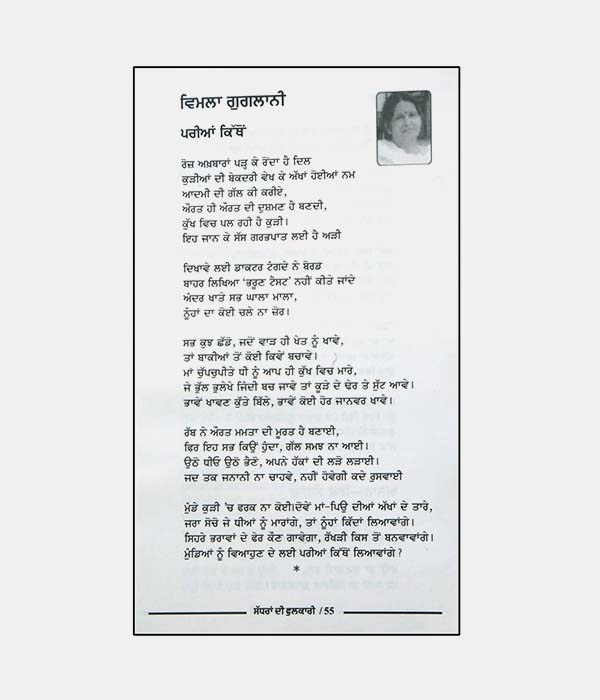 ਵਿਮਲਾ ਗੁਗਲਾਨੀ
ਪਰੀਆਂ ਕਿੱਥੋਂ
ਰੋਜ਼ ਅਖ਼ਬਾਰਾਂ ਪੜ੍ਹ ਕੇ ਰੋਂਦਾ ਹੈ ਦਿਲ
ਕੁੜੀਆਂ ਦੀ ਬੇਕਦਰੀ ਵੇਖ ਕੇ ਅੱਖਾਂ ਹੋਈਆਂ ਨਮ
ਆਦਮੀ ਦੀ ਗੱਲ ਕੀ ਕਰੀਏ,
ਔਰਤ ਹੀ ਔਰਤ ਦੀ ਦੁਸ਼ਮਣ ਹੈ ਬਣਦੀ,
ਕੁੱਖ ਵਿਚ ਪਲ ਰਹੀ ਹੈ ਕੁੜੀ।
ਇਹ ਜਾਨ ਕੇ ਸੱਸ ਗਰਭਪਾਤ ਲਈ ਹੈ ਅੜੀ
ਦਿਖਾਵੇ ਲਈ ਡਾਕਟਰ ਟੰਗਦੇ ਨੇ ਬੋਰਡ
ਬਾਹਰ ਲਿਖਿਆ ‘ਭਰੂਣ ਟੈਸਟ’ ਨਹੀਂ ਕੀਤੇ ਜਾਂਦੇ
ਅੰਦਰ ਖਾਤੇ ਸਭ ਘਾਲਾ ਮਾਲਾ,
ਨੂੰਹਾਂ ਦਾ ਕੋਈ ਚਲੇ ਨਾ ਜ਼ੋਰ।
ਸਭ ਕੁਝ ਛੱਡੋ, ਜਦੋਂ ਵਾੜ ਹੀ ਖੇਤ ਨੂੰ ਖਾਵੇ,
ਤਾਂ ਬਾਕੀਆਂ ਤੋਂ ਕੋਈ ਕਿਵੇਂ ਬਚਾਵੇ।
ਮਾਂ ਚੁੱਪਚੁਪੀਤੇ ਧੀ ਨੂੰ ਆਪ ਹੀ ਕੁੱਖ ਵਿਚ ਮਾਰੇ,
ਜੇ ਭੁੱਲ ਭੁਲੇਖੇ ਜਿੰਦੀ ਬਚ ਜਾਵੇ ਤਾਂ ਕੂੜੇ ਦੇ ਢੇਰ ਤੇ ਸੁੱਟ ਆਵੇ।
ਭਾਵੇਂ ਖਾਵਣ ਕੁੱਤੇ ਬਿੱਲੇ, ਭਾਵੇਂ ਕੋਈ ਹੋਰ ਜਾਨਵਰ ਖਾਵੇ।
ਰੱਬ ਨੇ ਔਰਤ ਮਮਤਾ ਦੀ ਮੂਰਤ ਹੈ ਬਣਾਈ,
ਫਿਰ ਇਹ ਸਭ ਕਿਉਂ ਹੁੰਦਾ, ਗੱਲ ਸਮਝ ਨਾ ਆਈ।
ਉਠੋ ਧੀਓ ਉਠੋ ਭੈਣੋ, ਅਪਨੇ ਹੱਕਾਂ ਦੀ ਲੜੋ ਲੜਾਈ।
ਜਦ ਤਕ ਜਨਾਨੀ ਨਾ ਚਾਹਵੇ, ਨਹੀਂ ਹੋਵੇਗੀ ਕਦੇ ਰੁਸਵਾਈ
ਮੁੰਡੇ ਕੁੜੀ 'ਚ ਫਰਕ ਨਾ ਕੋਈ।ਦੋਵੇਂ ਮਾਂ-ਪਿਉ ਦੀਆਂ ਅੱਖਾਂ ਦੇ ਤਾਰੇ,
ਜਰਾ ਸੋਚੋ ਜੇ ਧੀਆਂ ਨੂੰ ਮਾਰਾਂਗੇ, ਤਾਂ ਨੂੰਹਾਂ ਕਿੱਦਾਂ ਲਿਆਵਾਂਗੇ।
ਸਿਹਰੇ ਭਰਾਵਾਂ ਦੇ ਫੇਰ ਕੌਣ ਗਾਵੇਗਾ, ਰੱਖੜੀ ਕਿਸ ਤੋਂ ਬਨਵਾਵਾਂਗੇ।
ਮੁੰਡਿਆਂ ਨੂੰ ਵਿਆਹੁਣ ਦੇ ਲਈ ਪਰੀਆਂ ਕਿੱਥੋਂ ਲਿਆਵਾਂਗੇ ?
*
ਸੱਧਰਾਂ ਦੀ ਫੁਲਕਾਰੀ / 55